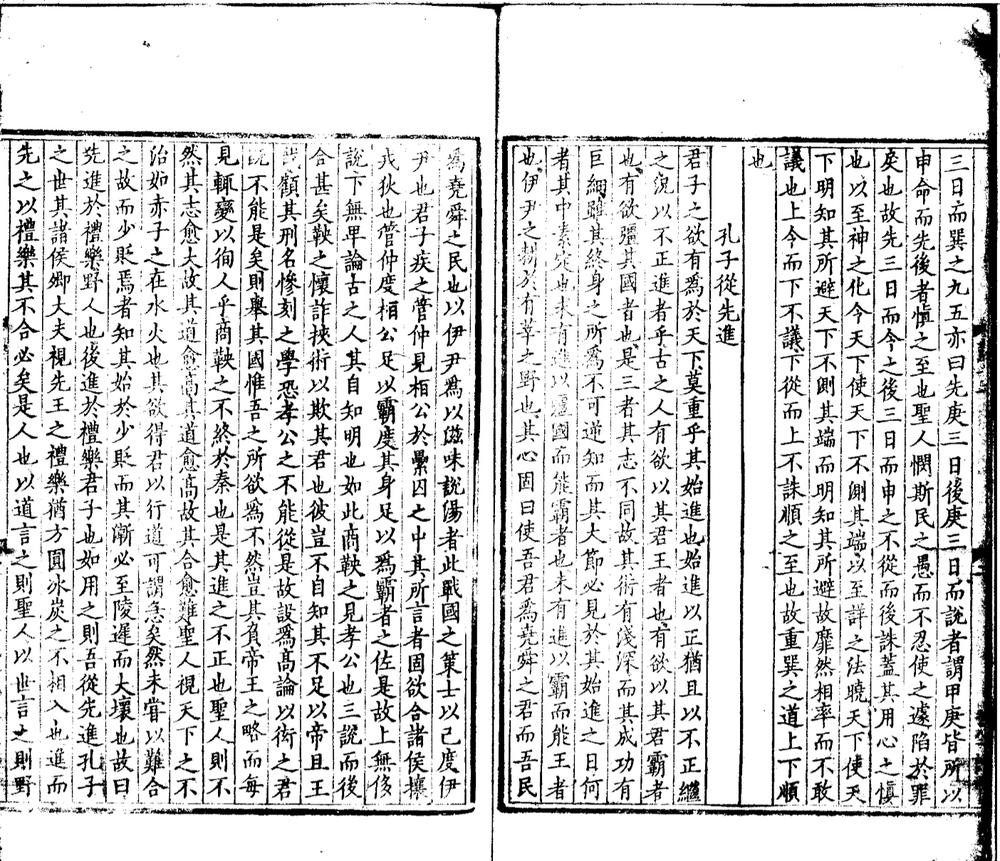 三日而巽之九五亦曰先庚三日後庚三日而說者謂甲庚皆所以
申命而先後者慎之至也聖人憫斯民之愚而不忍使之遽陷於罪
戾也故先三日而令之後三日而申之不從而後誅蓋其用心之慎
也以至神之化令天下使天下不測其端以至詳之法曉天下使天
下明知其所避天下不測其端而明知其所避故靡然相率而不敢
議也上令而下不議下從而上不誅順之至也故重巽之道上下順
也
孔子從先進
君子之欲有爲於天下莫重乎其始進也始進以正猶且以不正繼
之況以不正進者乎古之人有欲以其君王者也有欲以其君霸者
也有欲彊其國者也是三者其志不同故其術有淺深而其成功有
巨細雖其終身之所爲不可逆知而其大節必見於其始進之日何
者其中素定也未有進以彊國而能霸者也未有進以霸而能王者
也伊尹之耕於有莘之野也其心固曰使吾君爲堯舜之君而吾民
爲堯舜之民也以伊尹爲以滋味說湯者此戰國之策士以己度伊
尹也君子疾之管仲見桓公於纍囚之中其所言者固欲合諸侯攘
戎狄也管仲度桓公足以霸度其身足以爲霸者之佐是故上無侈
說下無卑論古之人其自知明也如此商鞅之見孝公也三說而後
合甚矣鞅之懷詐挾術以欺其君也彼豈不自知其不足以帝且王
哉顧其刑名慘刻之學恐孝公之不能從是故設爲高論以衒之君
既不能是矣則舉其國惟吾之所欲爲不然豈其負帝王之略而每
見輒變以徇人乎商鞅之不終於秦也是其進之不正也聖人則不
然其志愈大故其道愈高其道愈高故其合愈難聖人視天下之不
治如赤子之在水火也其欲得君以行道可謂急矣然未嘗以難合
之故而少貶焉者知其始於少貶而其漸必至陵遲而大壞也故曰
先進於禮樂野人也後進於禮樂君子也如用之則吾從先進孔子
之世其諸侯卿大夫視先王之禮樂猶方圓冰炭之不相入也進而
先之以禮樂其不合必矣是人也以道言之則聖人以世言之則野